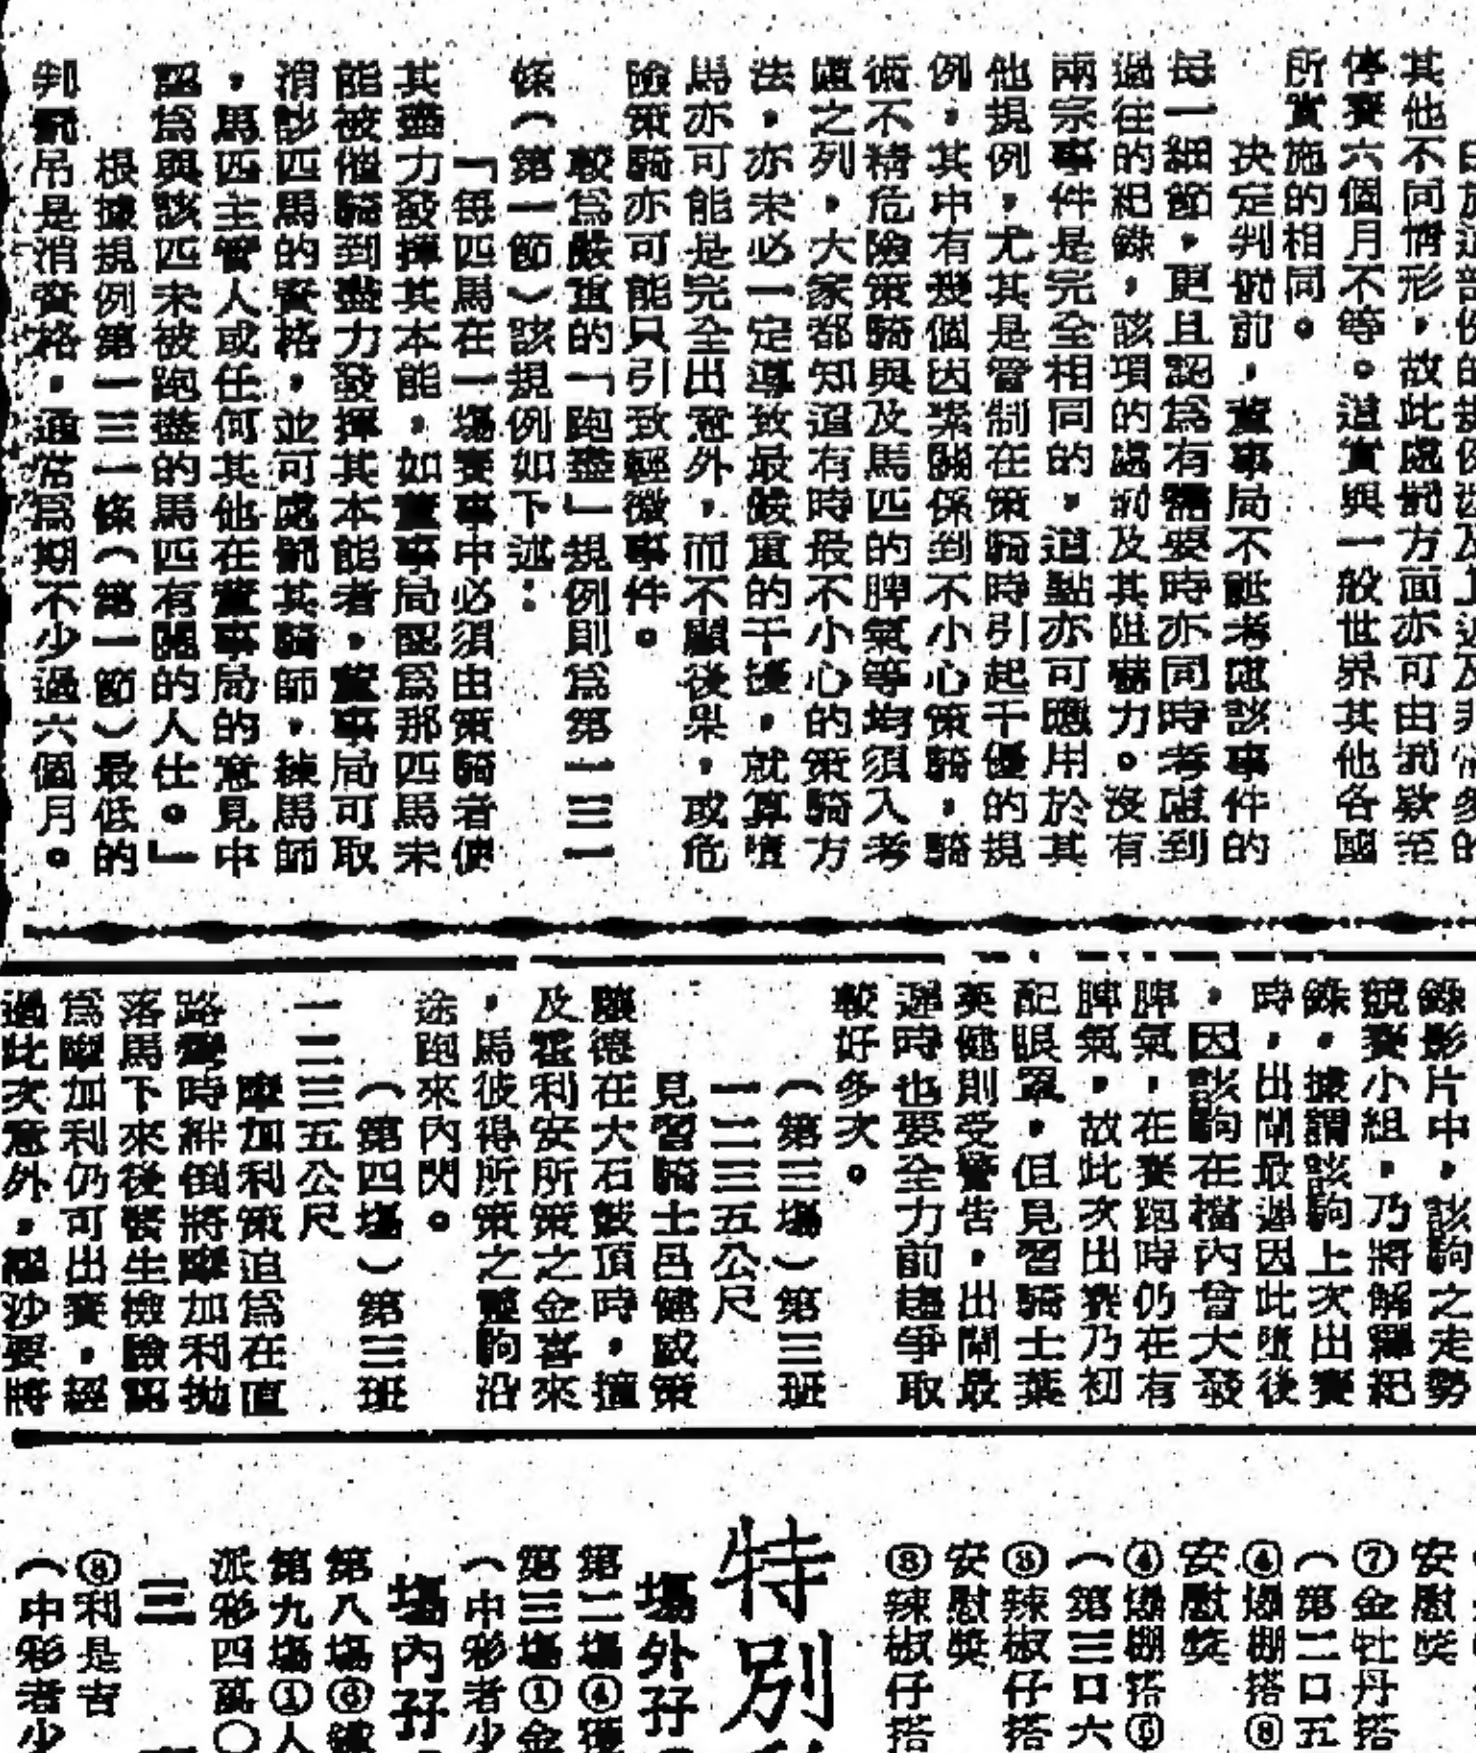 其他不同情形，故此處罰方面亦可由罰款至
停賽六個月不等。這實與一般世界其他各國
所實施的相同。
決定判罰前，董事局不祗考慮該事件的
每一細節，更且認為有需要時亦同時考慮到
過往的紀錄，該項的處罰及其阻嚇力。沒有
兩宗事件是完全相同的，這點亦可應用於其
他規例，尤其是管制在策騎時引起干優的規
例，其中有幾個因素關係到不小心策騎，騎
術不精危險策騎與及馬匹的脾氣等均須入考
慮之列，大家都知道有時最不小心的策騎方
法，亦未必一定導致最嚴重的干擾，就算墮
馬亦可能是完全出意外，而不顧後果，或危
險策騎亦可能只引致輕微事件。
較為嚴重的「跑盡」規例則為第一三一
條（第一節）該規例如下述：
「每匹馬在一場賽事中必須由策騎者使
其盡力發揮其本能，如董事局認為那匹馬未
能被催騎到盡力發揮其本能者，董事局可取
消該匹馬的賽格，並可處罰其騎師，練馬師
，馬匹主管人或任何其他在董事局的意見中
認為與該匹未被跑盡的馬匹有關的人仕。」
根據規例第一三一條（第一節）最低的
判罰吊是消賽格，通常為期不少過六個月。
錄影片中，該駒之走勢
競賽小組，乃將解釋紀
錄，據謂該駒上次出賽
時，出閘最遲因此墮後
，因該駒在檔內曾大發
脾氣，在賽跑時仍在有
脾氣，故此次出賽乃初
配眼罩，但見習騎士葉
英健則受警告，出閘最
遲時也要全力前趨爭取
較好多次。
（第三場）第三班
一二三五公尺
見習騎士呂健威策
驥德在大石鼓頂時，擅
及霍利安所策之金喜來
，馬彼得所策之醒駒沿
途跑來內閃。
（第四場）第三班
一二三五公尺
摩加利策追為在直
路彎時絆倒將摩加利拋
落馬下來後醫生檢驗認
為摩加利仍可出賽，經
過此次意外，羅沙要將
安慰獎
⑦金牡丹搭
（第二口五
④爆棚搭⑧
安慰獎
④爆棚搭
（第三口六
⑧辣椒仔搭
安慰獎
⑧辣椒仔搭
特別
場外孖
第二場④
第三場①金
（中彩者少
場內孖
第八場⑥
第九場①人
派彩四萬〇
三
⑧利是吉
（中彩者少